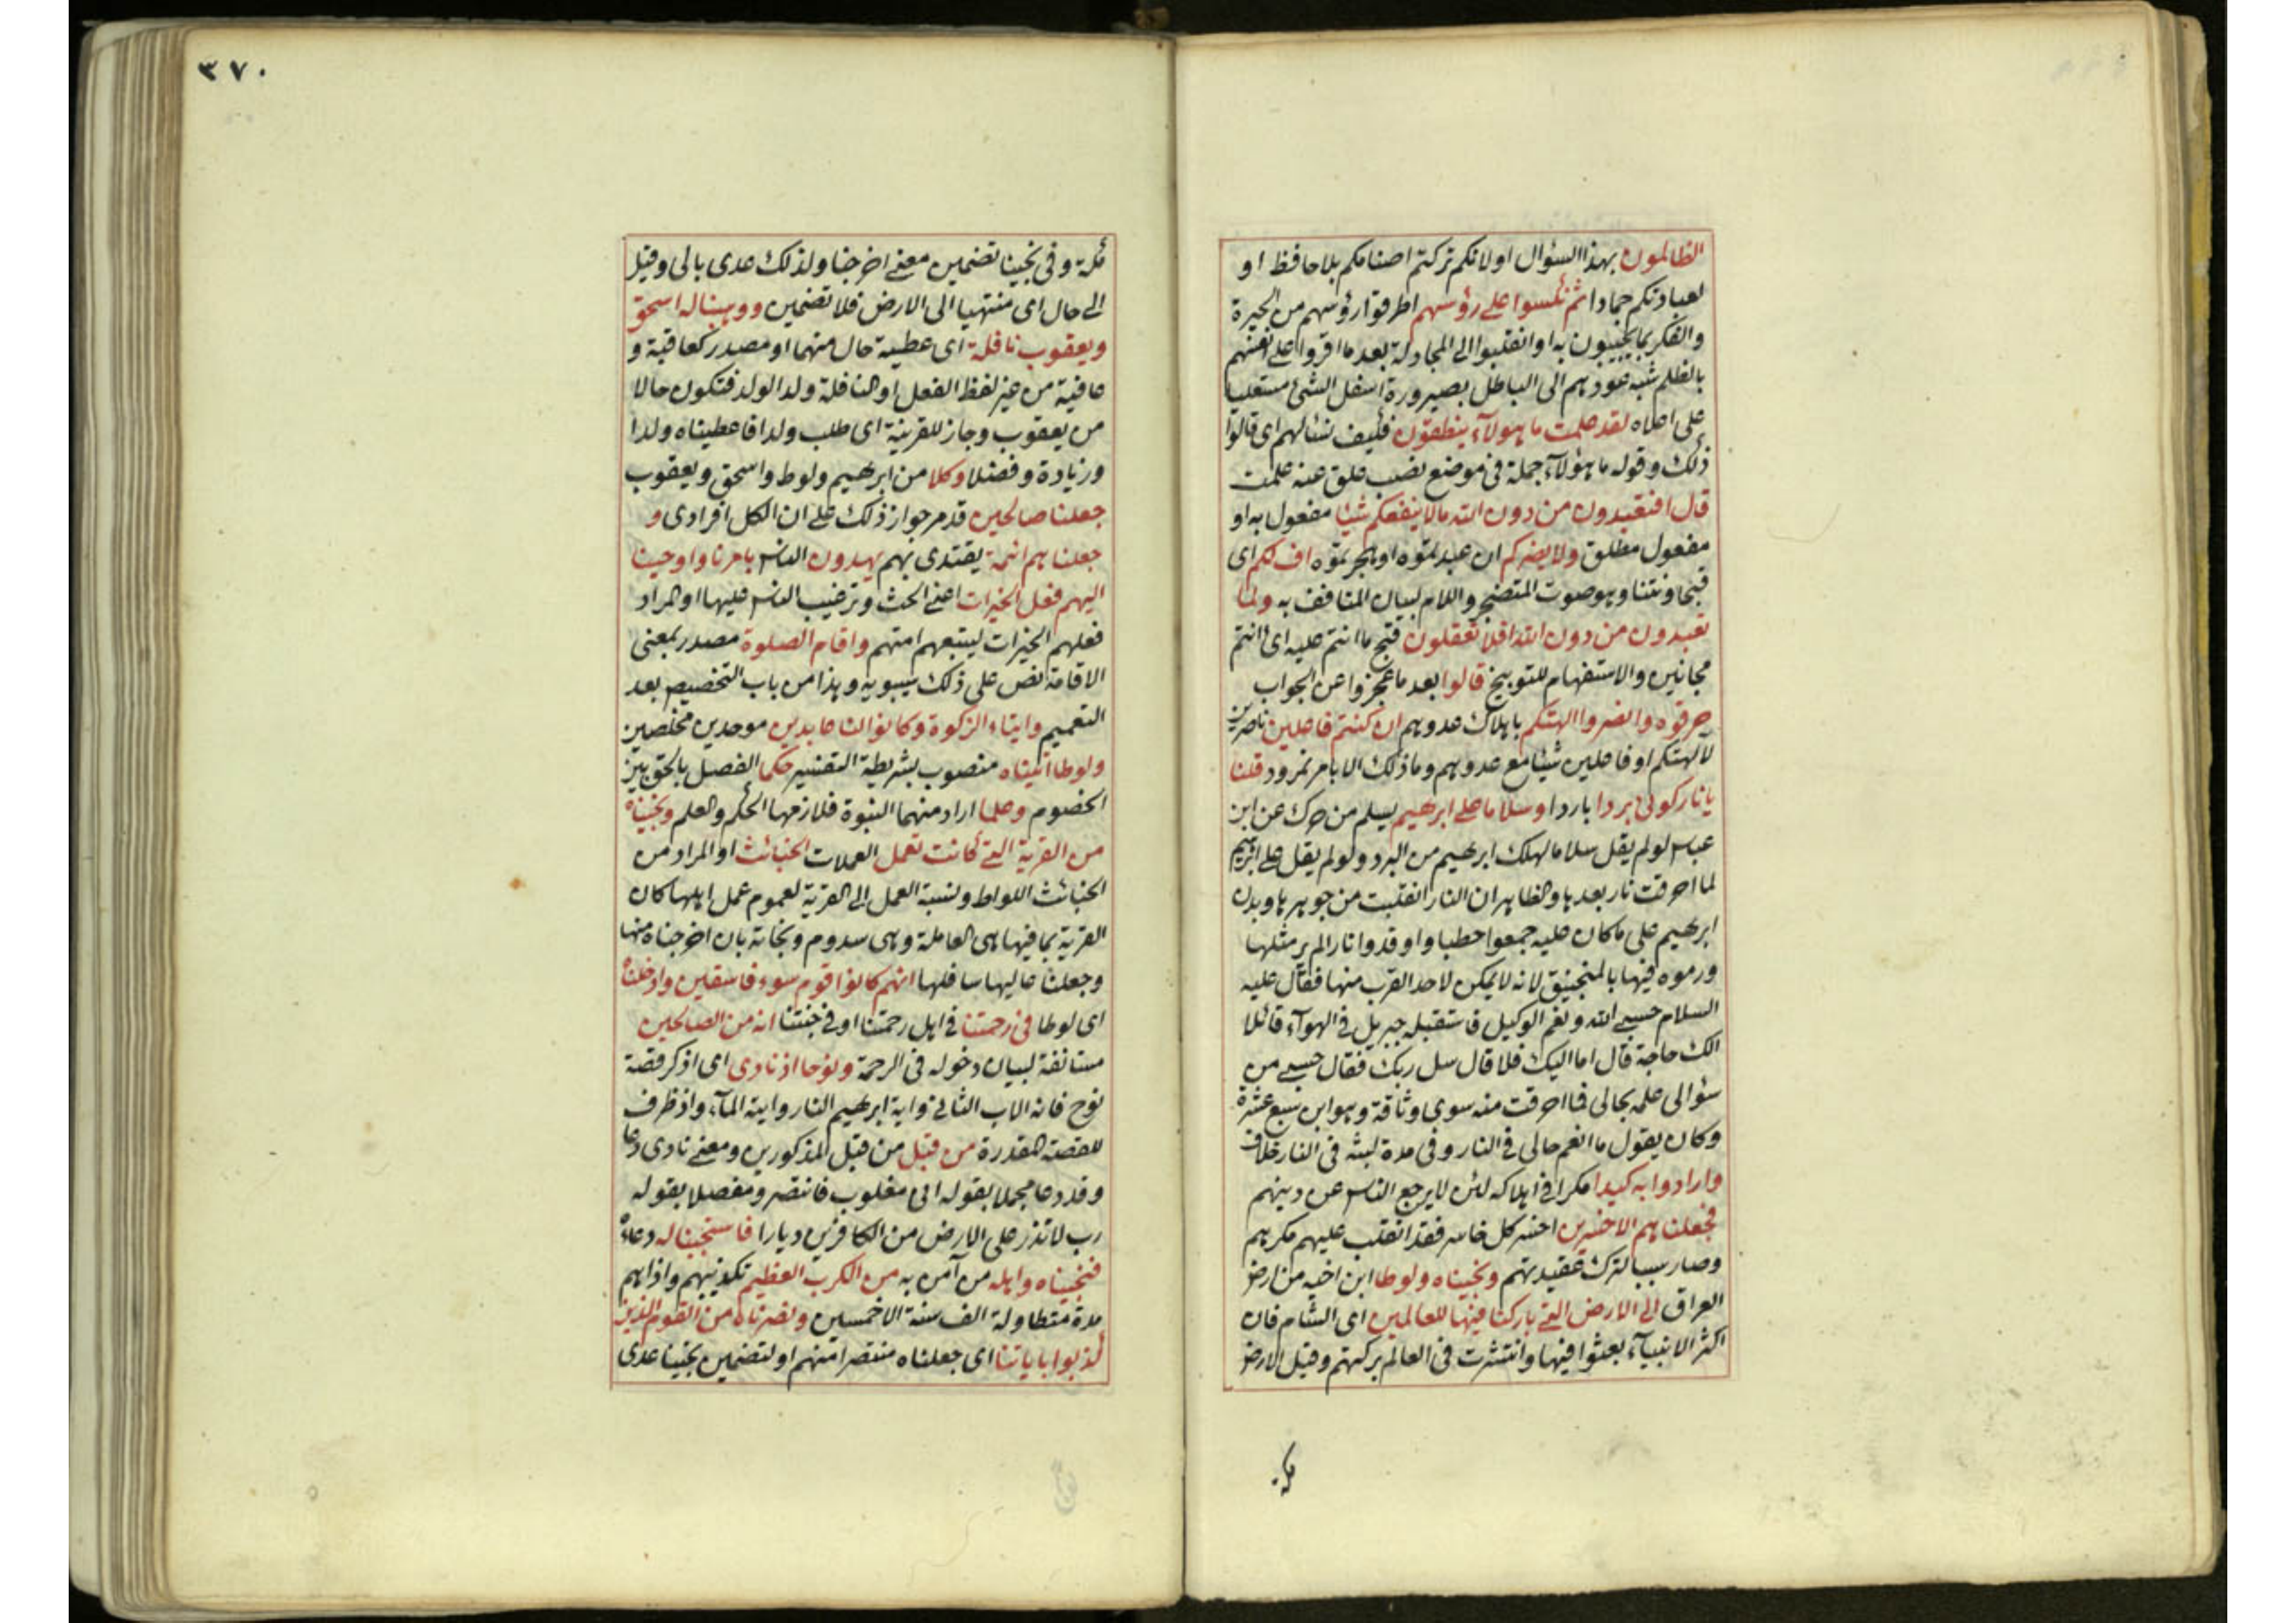 الظالمون بهذا السؤال او لانكم تركتم اصنامكم بلا حافظ او
لعبادتكم جمادا ثم نكسوا على رؤسهم اطرقوا رؤسهم من الحيرة
والفكر بما يجيبون به او انقلبوا الى المجادلة بعد ما اقروا على انفسهم
بالظلم شبه عودهم الى الباطل بصيرورة اسفل الشئ مستعليا
على اعلاه لقد علمت ما هولآء ينطقون فكيف نسئالهم اى قالوا
ذلك وقوله ما هؤلآء جملة فى موضع نصب علق عنه علمت
قال افتعبدون من دون الله مالا ينفعكم شيئا مفعول به او
مفعول مطلق ولا يضركم ان عبدتموه او هجرتموه اف لكم اى
قبحا ونتنا وهو صوت المتضجر واللام لبيان المتافف به ولما
تعبدون من دون الله افلا تعقلون قبح ما انتم عليه اى انتم
مجانين والاستفهام للتوبيخ قالوا بعد ما عجزوا عن الجواب
حرقوه وانصروا الهتكم باهلاك عدوهم ان كنتم فاعلين ناصرين
لآلهتكم او فاعلين شيئا مع عدوهم وما ذلك الا بامر نمرود قلنا
يا نار كونى بردا باردا وسلاما على ابرهيم يسلم من حرك عن ابن
عباس لو لم يقل سلاما لهلك ابرهيم من البرد ولو لم يقل على ابرهيم
لما احرقت نار بعدها والظاهر ان النار انقلبت من جوهرها وبدن
ابرهيم على ما كان عليه جمعوا حطبا واوقدوا نارا لم ير مثلها
ورموه فيها بالمنجنيق لانه لا يمكن لاحد القرب منها فقال عليه
السلام حسبى الله ونعم الوكيل فاستقبله جبريل فى الهوآء قائلا
الك حاجة قال اما اليك فلا قال سل ربك فقال حسبى من
سؤالى علمه بحالى فما احرقت منه سوى وثاقة وهو ابن سبع عشرة
وكان يقول ما انعم حالى فى النار وفى مدة لبثه فى النار خلاف
وارادوا به كيدا مكرا فى اهلاكه لئن لا يرجع الناس عن دينهم
فجعلناهم الاخسرين اخسر كل خاسر فقد انقلب عليهم مكرهم
وصار سببا لترك عقيدتهم ونجيناه ولوطا ابن اخيه من ارض
العراق الى الارض التى باركنا فيها للعالمين اى الشام فان
اكثر الانبيآء بعثوا فيها وانتشرت فى العالم بركتهم وقيل الارض
مكة
٣٧٠
مكة وفى نجينا تضمين معنى اخرجنا ولذلك عدى بالى وقيل
الى حال اى منتهيا الى الارض فلا تضمين ووهبنا له اسحق
ويعقوب نافلة اى عطية حال منهما او مصدر كعاقبة و
عافية من غير لفظ الفعل او النافلة ولد الولد فتكون حالا
من يعقوب وجاز للقرينة اى طلب ولدا فاعطيناه ولدا
وزيادة وفضلا وكلا من ابرهيم ولوط واسحق ويعقوب
جعلنا صالحين قد مر جواز ذلك على ان الكل افرادى و
جعلناهم ائمة يقتدى بهم يهدون الناس بامرنا واوحينا
اليهم فعل الخيرات اعنى الحث وترغيب الناس عليها او المراد
فعلهم الخيرات ليتبعهم امتهم واقام الصلوة مصدر بمعنى
الاقامة نص على ذلك سيبويه وهذا من باب التخصيص بعد
التعميم وايتاء الزكوة وكانوا لنا عابدين موحدين مخلصين
ولوطا اتيناه منصوب بشريطة التفسير حكما الفصل بالحق بين
الخصوم وعلما اراد منهما النبوة فلازمها الحكم والعلم ونجيناه
من القرية التى كانت تعمل العملات الخبائث او المراد من
الخبائث اللواط ونسبة العمل الى القرية لعموم عمل اهلها كان
القرية بما فيها هى العاملة وهى سدوم ونجاته بان اخرجناه منها
وجعلنا عاليها سافلها انهم كانوا قوم سوء فاسقين وادخلناه
اى لوطا فى رحمتنا فى اهل رحمتنا او فى جنتنا انه من الصالحين
مستانفة لبيان دخوله فى الرحمة ونوحا اذ نادى اى اذكر قصة
نوح فانه الاب الثانى واية ابرهيم النار وايته المآء واذ ظرف
للقصة المقدرة من قبل من قبل المذكورين ومعنى نادى دعا
وقد دعا مجملا بقوله انى مغلوب فانتصر ومفصلا بقوله
رب لا تذر على الارض من الكافرين ديارا فاستجبنا له دعاءه
فنجيناه واهله من آمن به من الكرب العظيم تكذيبهم واذاهم
مدة متطاولة الف سنة الا خمسين ونصرناه من القوم الذين
كذبوا باياتنا اى جعلناه منتصرا منهم او لتضمين نجينا عدى